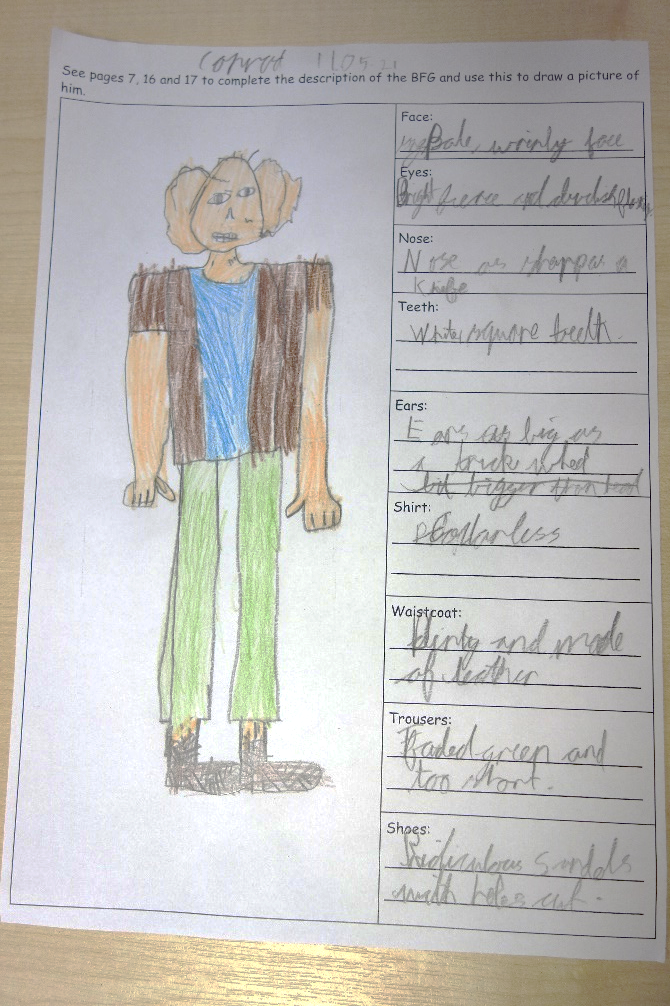 Conrod 11.05.21
See pages 7, 16 and 17 to complete the description of the BFG and use this to draw a picture of
him.
Face:
Pale, wrinly face
Eyes:
Bright fierce and
Nose:
Nose as sharp as a
Knife
Teeth:
White square teeth.
Ears:
Ears as big as
a truck wheel
but bigger than
Shirt:
Collarless
Waistcoat:
dirty and made
of leather
Trousers:
Faded green and
too short.
Shoes:
Ridiculous sandals
with holes cut.